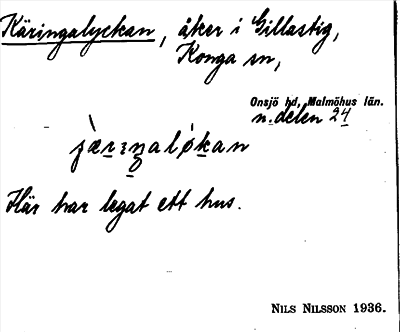 Käringalyckan, åker i Gillastig,
Konga sn,
Onsjö hd, Malmöhus län.
n. delen 24
Här har legat ett hus.
NILS NILSSON 1936.